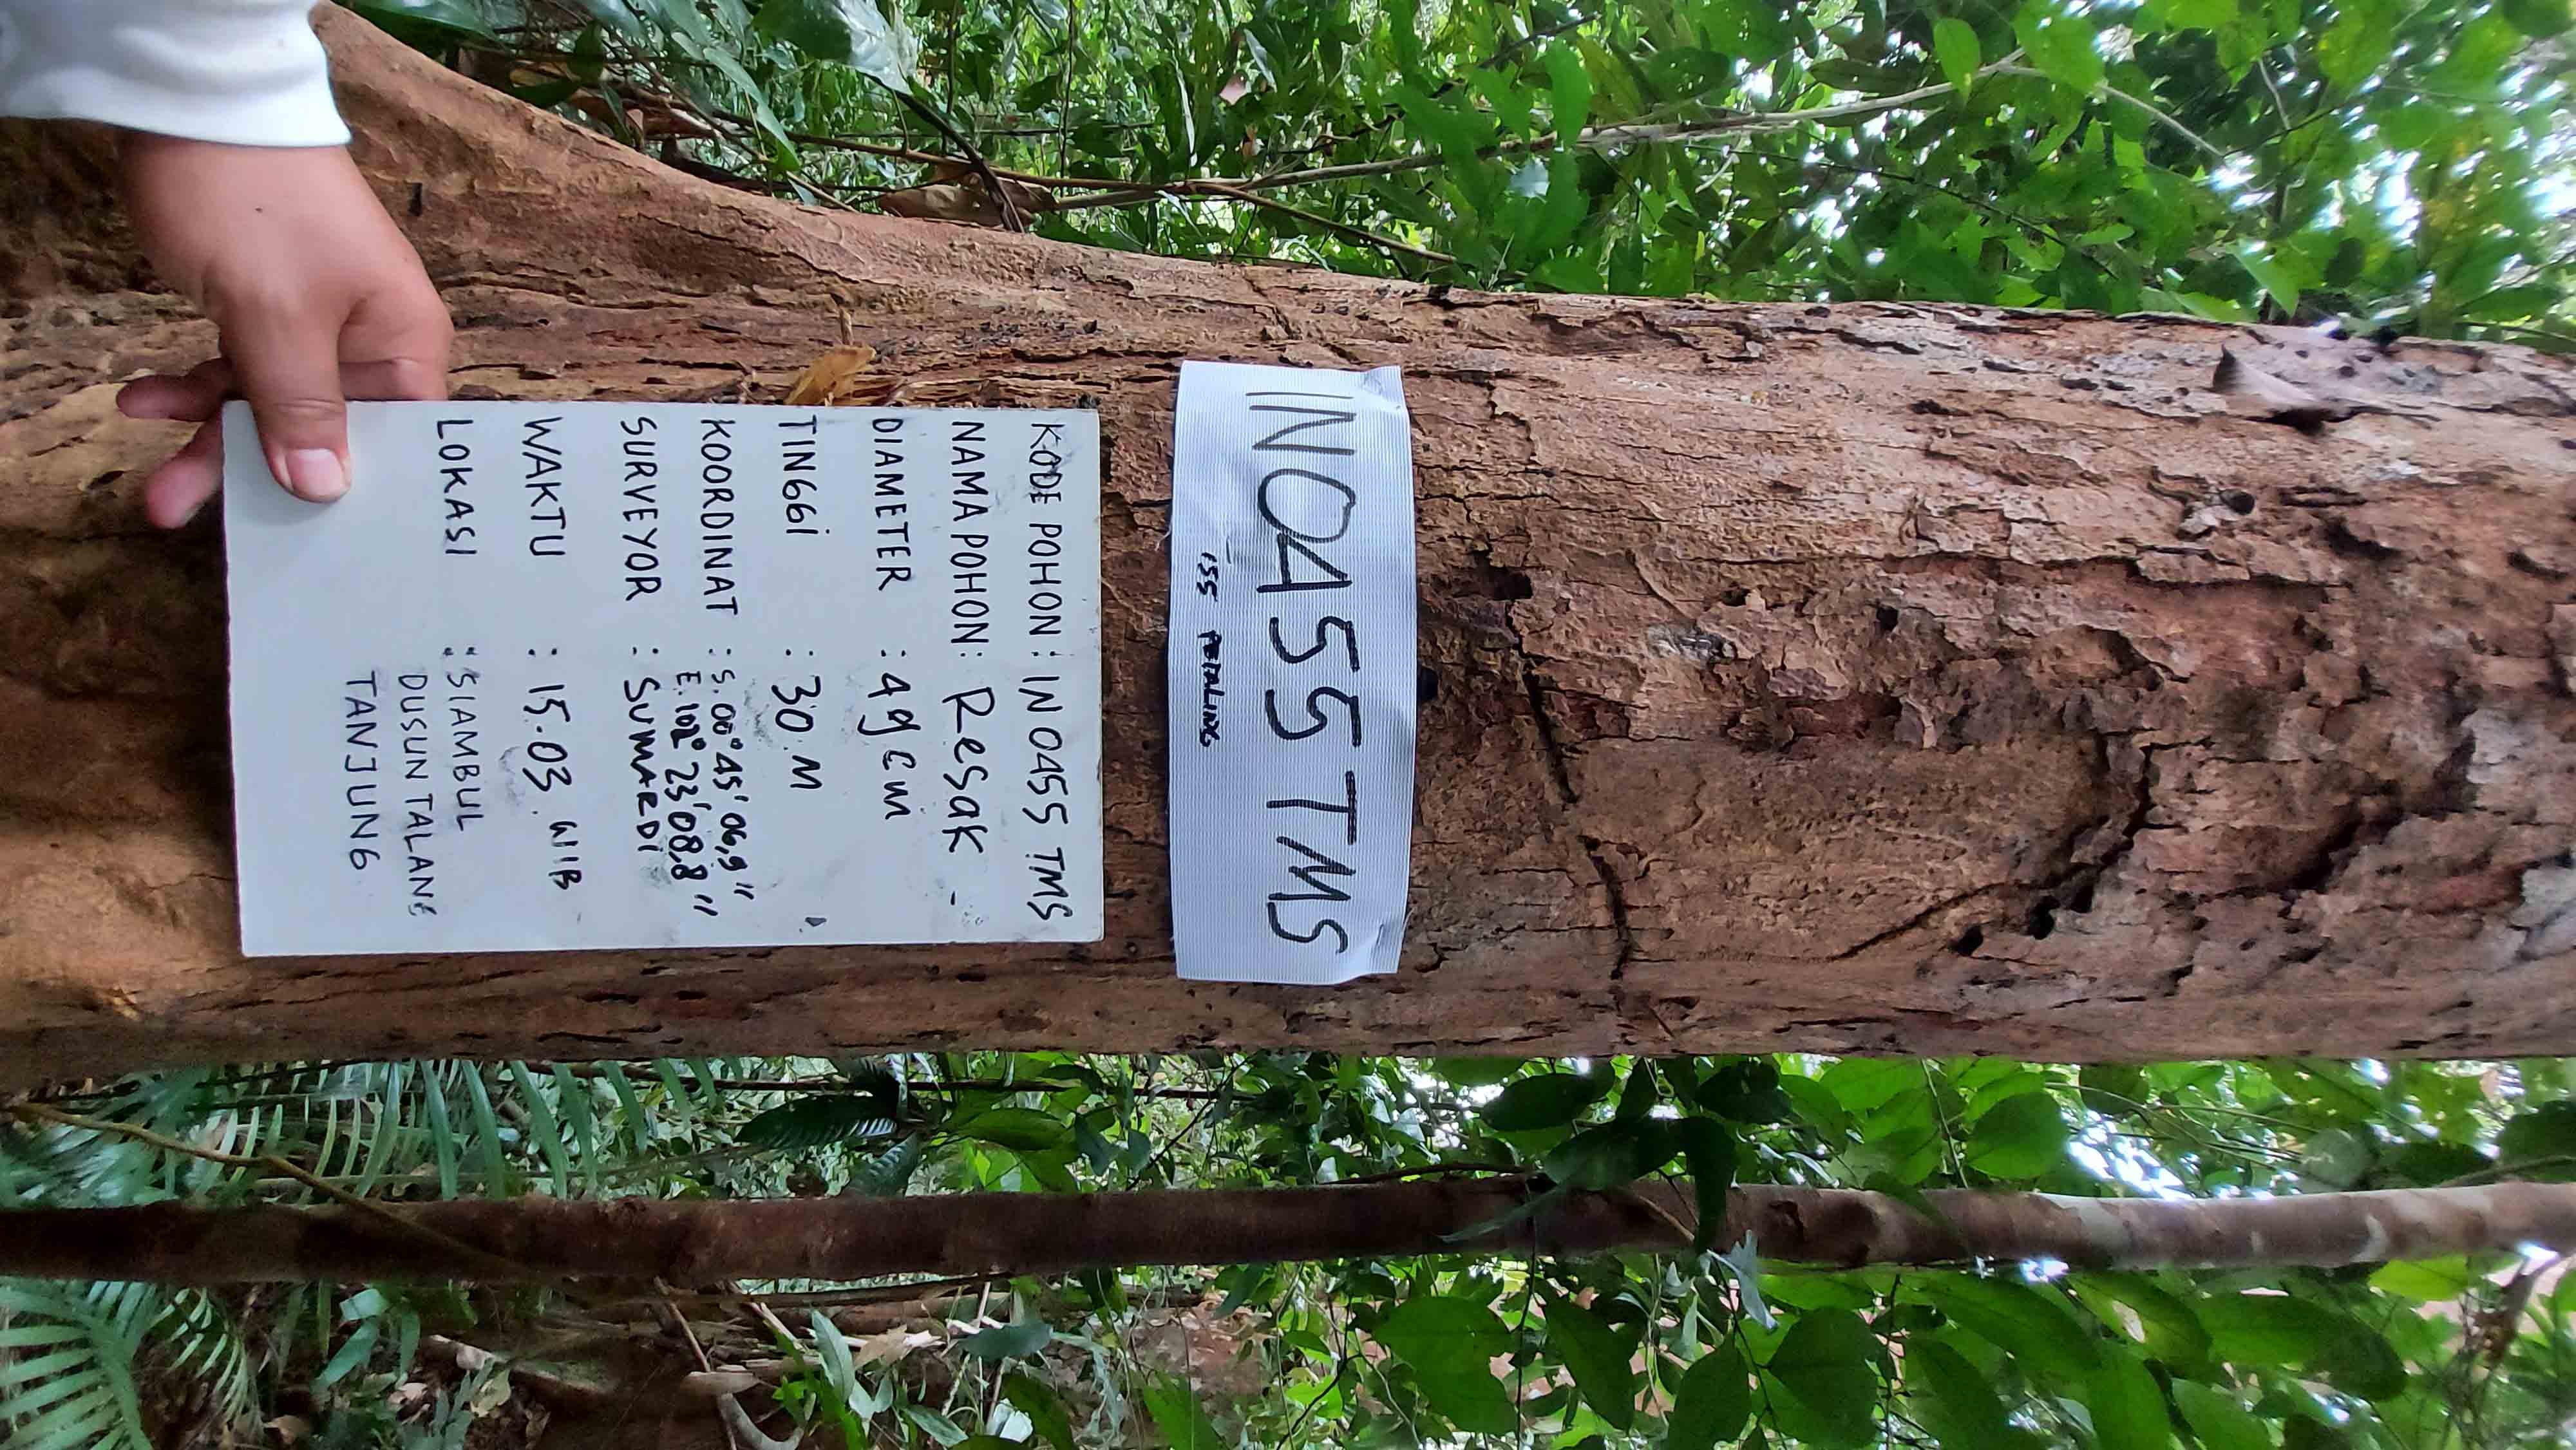 IN0455 TMS
155 PETALING
KODE POHON : IN 0455 TMS
NAMA POHON : Resak -
DIAMETER : 49 cm
TINGGI : 30 M
KOORDINAT : S. 00° 45' 06,9"
E. 102° 23' 08,8"
SURVEYOR : SUMARDI
WAKTU : 15.03. WIB
LOKASI : SIAMBUL
DUSUN TALANG
TANJUNG